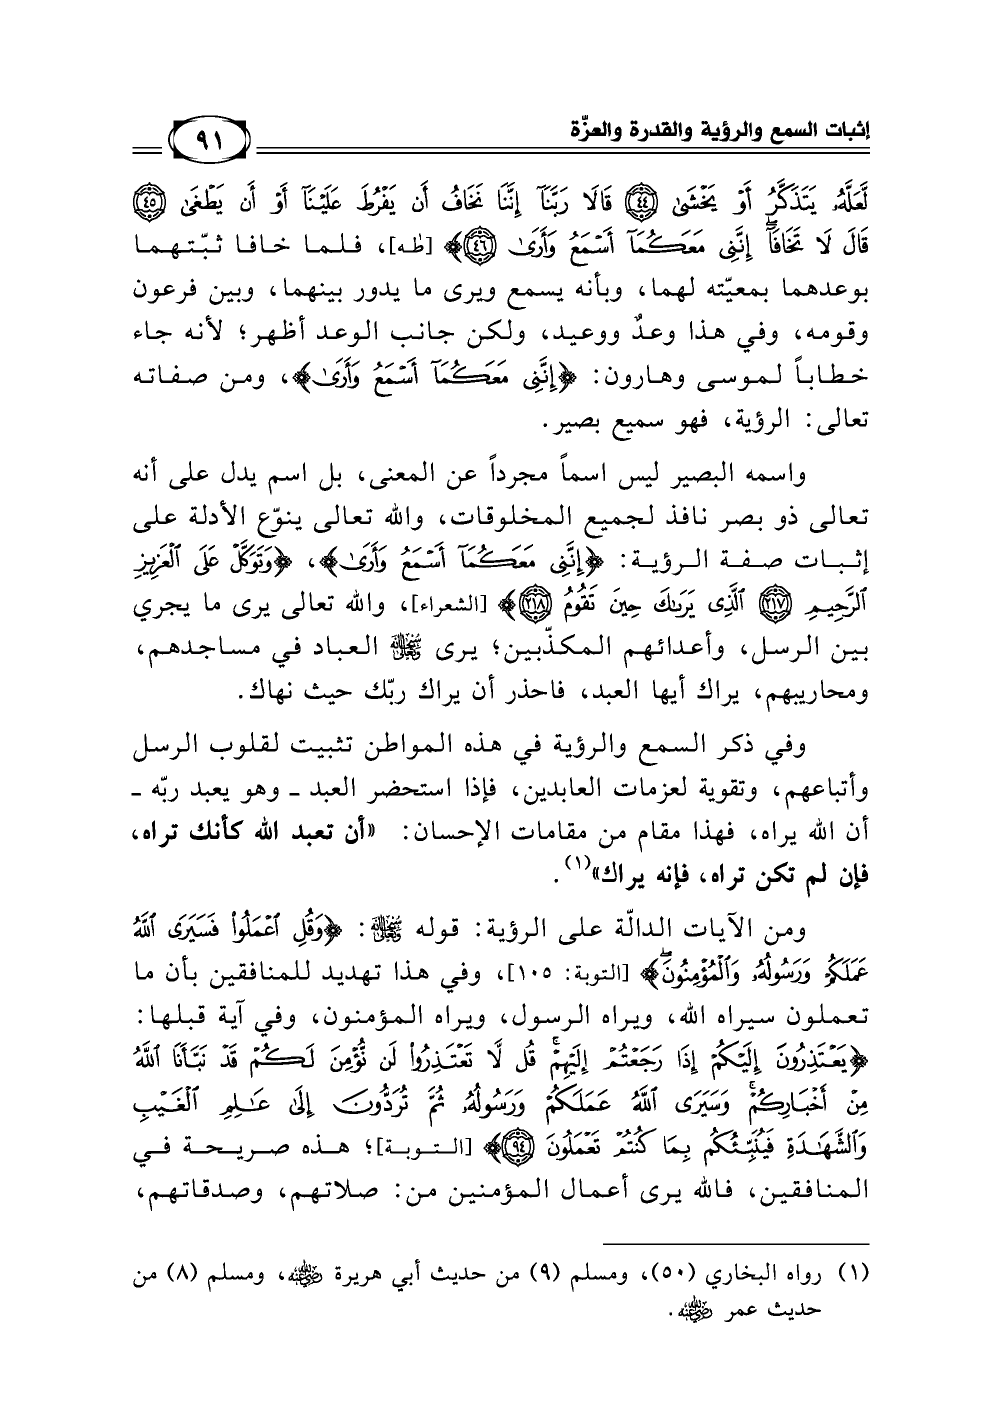 إثبات السمع والرؤية والقدرة والعزّة
٩١
لَّعَلَّهُۥ يَتَذَكَّرُ أَوْ يَخْشَىٰ ﴿٤٤﴾ قَالَا رَبَّنَآ إِنَّنَا نَخَافُ أَن يَفْرُطَ عَلَيْنَآ أَوْ أَن يَطْغَىٰ ﴿٤٥﴾
قَالَ لَا تَخَافَآ ۖ إِنَّنِى مَعَكُمَآ أَسْمَعُ وَأَرَىٰ ﴿٤٦﴾﴾ [طه]، فلما خافا ثبّتهما
بوعدهما بمعيّته لهما، وبأنه يسمع ويرى ما يدور بينهما، وبين فرعون
وقومه، وفي هذا وعدٌ ووعيد، ولكن جانب الوعد أظهر؛ لأنه جاء
خطاباً لموسى وهارون: ﴿إِنَّنِى مَعَكُمَآ أَسْمَعُ وَأَرَىٰ﴾، ومن صفاته
تعالى: الرؤية، فهو سميع بصير.
واسمه البصير ليس اسماً مجرداً عن المعنى، بل اسم يدل على أنه
تعالى ذو بصر نافذ لجميع المخلوقات، والله تعالى ينوّع الأدلة على
إثبات صفة الرؤية: ﴿إِنَّنِى مَعَكُمَآ أَسْمَعُ وَأَرَىٰ﴾، ﴿وَتَوَكَّلْ عَلَى ٱلْعَزِيزِ
ٱلرَّحِيمِ ﴿٢١٧﴾ ٱلَّذِى يَرَىٰكَ حِينَ تَقُومُ ﴿٢١٨﴾﴾ [الشعراء]، والله تعالى يرى ما يجري
بين الرسل، وأعدائهم المكذّبين؛ يرى ﷾ العباد في مساجدهم،
ومحاريبهم، يراك أيها العبد، فاحذر أن يراك ربّك حيث نهاك.
وفي ذكر السمع والرؤية في هذه المواطن تثبيت لقلوب الرسل
وأتباعهم، وتقوية لعزمات العابدين، فإذا استحضر العبد ـ وهو يعبد ربّه ـ
أن الله يراه، فهذا مقام من مقامات الإحسان: «أن تعبد الله كأنك تراه،
فإن لم تكن تراه، فإنه يراك»(١).
ومن الآيات الدالّة على الرؤية: قوله ﷾: ﴿وَقُلِ ٱعْمَلُوا۟ فَسَيَرَى ٱللَّهُ
عَمَلَكُمْ وَرَسُولُهُۥ وَٱلْمُؤْمِنُونَ ۖ﴾ [التوبة: ١٠٥]، وفي هذا تهديد للمنافقين بأن ما
تعملون سيراه الله، ويراه الرسول، ويراه المؤمنون، وفي آية قبلها:
﴿يَعْتَذِرُونَ إِلَيْكُمْ إِذَا رَجَعْتُمْ إِلَيْهِمْ ۚ قُل لَّا تَعْتَذِرُوا۟ لَن نُّؤْمِنَ لَكُمْ قَدْ نَبَّأَنَا ٱللَّهُ
مِنْ أَخْبَارِكُمْ ۚ وَسَيَرَى ٱللَّهُ عَمَلَكُمْ وَرَسُولُهُۥ ثُمَّ تُرَدُّونَ إِلَىٰ عَـٰلِمِ ٱلْغَيْبِ
وَٱلشَّهَـٰدَةِ فَيُنَبِّئُكُم بِمَا كُنتُمْ تَعْمَلُونَ ﴿٩٤﴾﴾ [التوبة]؛ هذه صريحة في
المنافقين، فالله يرى أعمال المؤمنين من: صلاتهم، وصدقاتهم،
(١) رواه البخاري (٥٠)، ومسلم (٩) من حديث أبي هريرة رضي الله عنه، ومسلم (٨) من
حديث عمر رضي الله عنه.